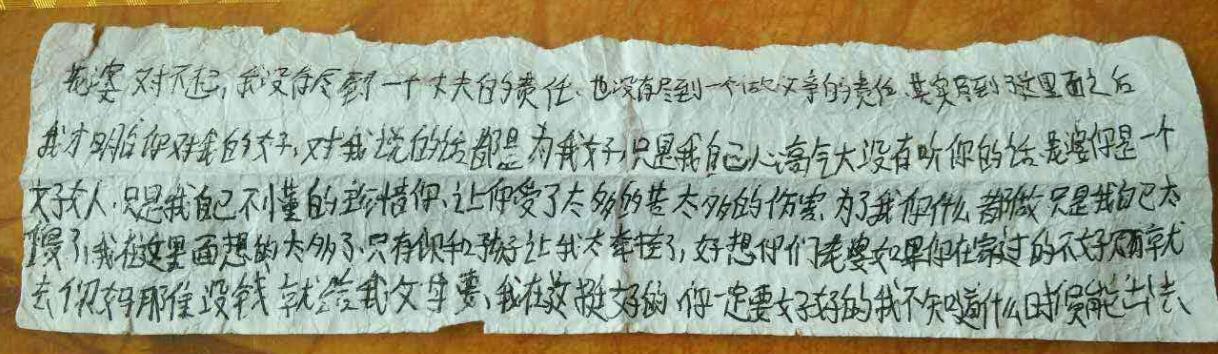 老婆对不起,我没有尽到一个丈夫的责任.也没有尽到一个做父亲的责任.其实自到了这里面之后
我才明白你对我的好,对我说的话都是为我好,只是我自己心高气大没有听你的话.老婆你是一个
好女人.只是我自己不懂的珍惜你,让你受了太多的苦太多的伤害.为了我你什么都做只是我自己太
傻了,我在这里面想的太多了.只有你和孩子让我太牵挂了,好想你们老婆如果你在家过的不好就
去你妈那住没钱就给我父母要、我在这挺好的.你一定要好好的我不知道什么时候能出去、